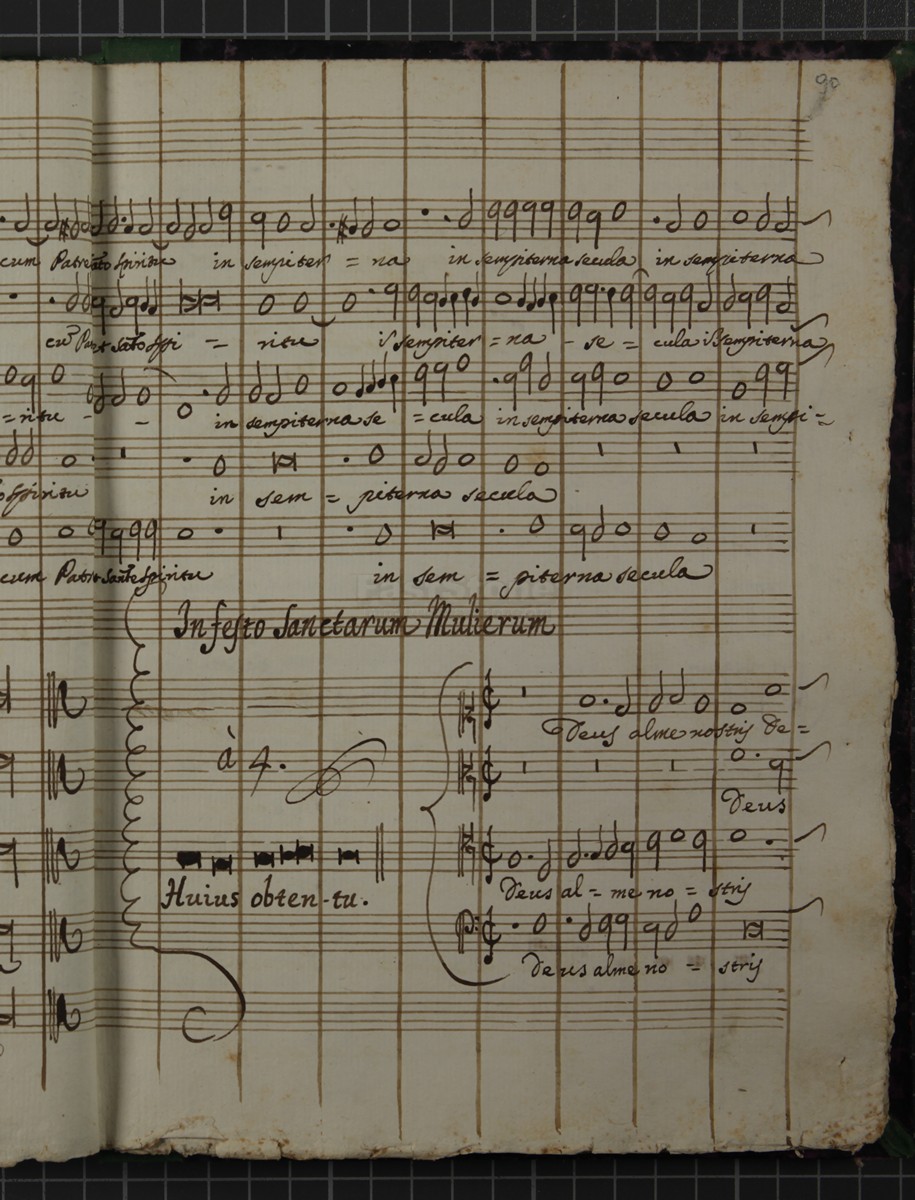 90
cum Patri Sto Spiritu in sempiter = na in sempiterna secula in sempiterna
Spi = ritu Sempiter = na - se = cula sempiterna
= ritu - - in sempiterna se = cula in sempiterna secula in sempi =
Spiritu in sem = piterna secula
cum Patri Sancte Spiritu in sem = piterna secula
In festo Sanctarum Mulierum
Deus alme nostris De =
à 4.
Deus
Huius obten-tu. Deus al = me no = stris
Deus alme no = stris